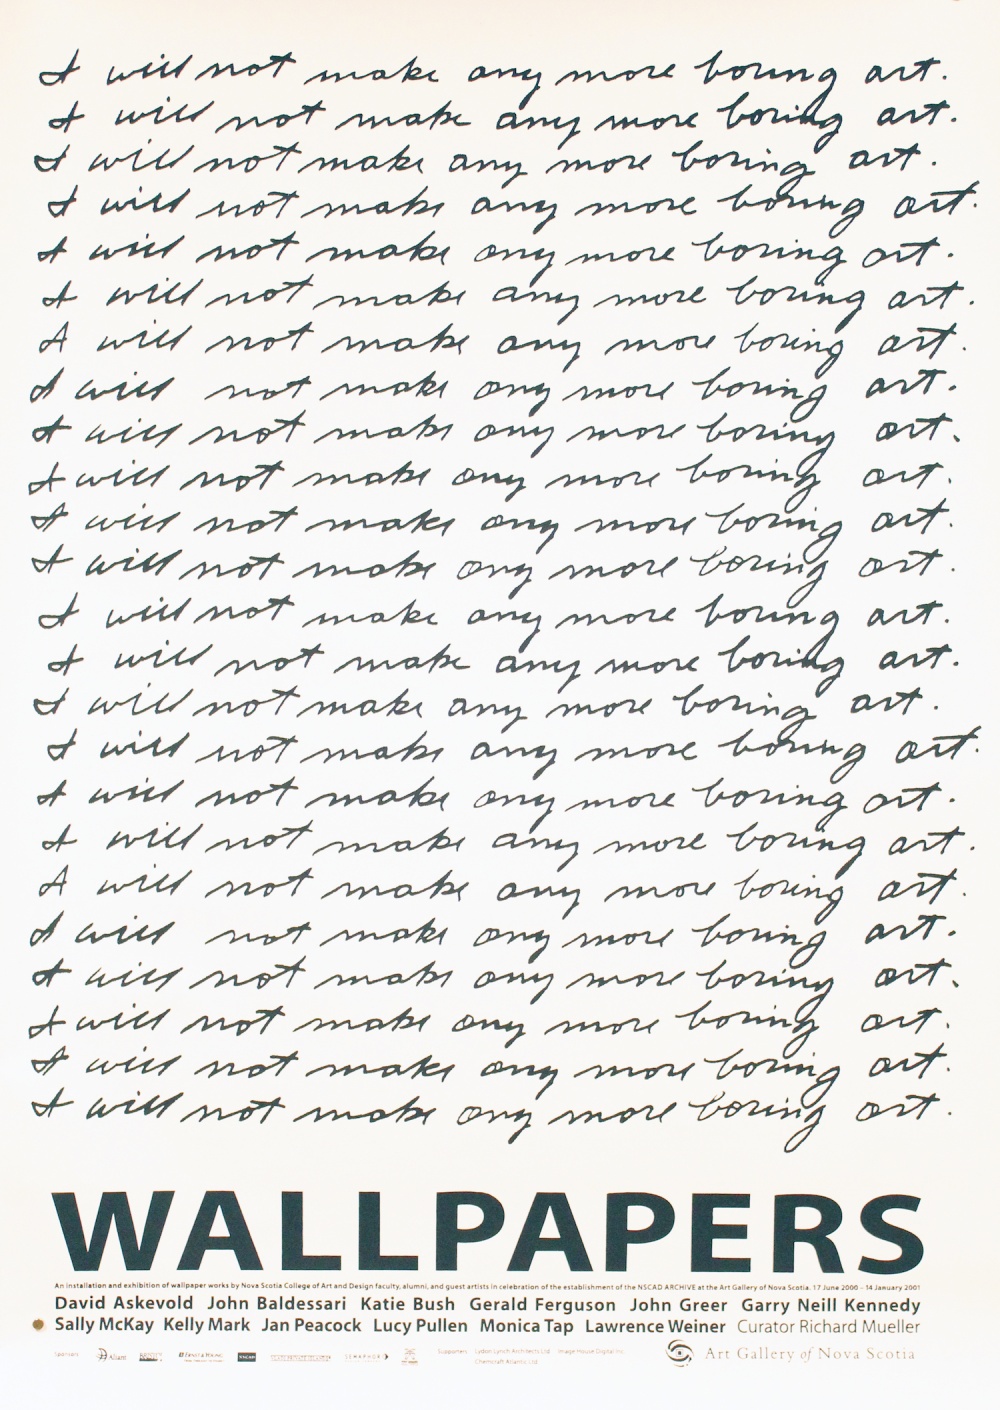 I will not make any more boring art.
I will not make any more boring art.
I will not make any more boring art.
I will not make any more boring art.
I will not make any more boring art.
I will not make any more boring art.
I will not make any more boring art.
I will not make any more boring art.
I will not make any more boring art.
I will not make any more boring art.
I will not make any more boring art.
I will not make any more boring art.
I will not make any more boring art.
I will not make any more boring art.
I will not make any more boring art.
I will not make any more boring art.
I will not make any more boring art.
I will not make any more boring art.
I will not make any more boring art.
I will not make any more boring art.
I will not make any more boring art.
I will not make any more boring art.
I will not make any more boring art.
I will not make any more boring art.
WALLPAPERS
An installation and exhibition of wallpaper works by Nova Scotia College of Art and Design faculty, alumni, and guest artists in celebration of the establishment of the NSCAD ARCHIVE at the Art Gallery of Nova Scotia. 17 June 2000 – 14 January 2001
David Askevold John Baldessari Katie Bush Gerald Ferguson John Greer Garry Neill Kennedy
Sally McKay Kelly Mark Jan Peacock Lucy Pullen Monica Tap Lawrence Weiner Curator Richard Mueller
Sponsors Aliant NSCAD Supporters Lydon Lynch Architects Ltd Image House Digital Inc. Art Gallery of Nova Scotia
Chemcraft Atlantic Ltd.